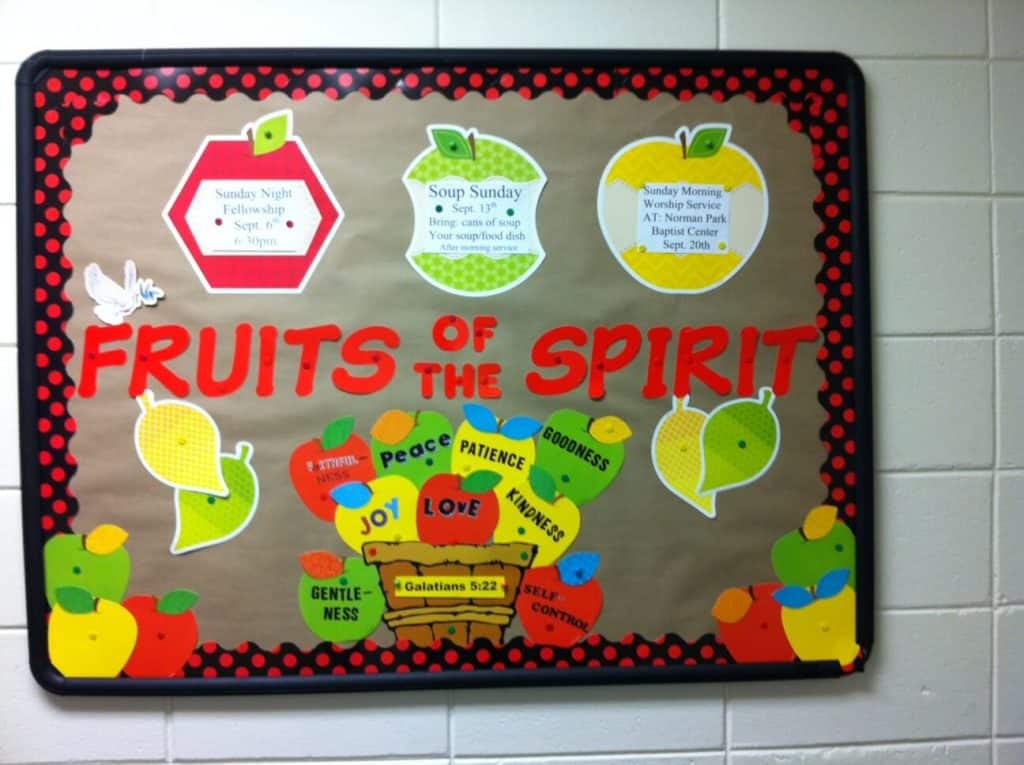 Sunday Night
Fellowship
Sept. 6th
6:30pm
Soup Sunday
Sept. 13th
Bring: cans of soup
Your soup/food dish
After morning service
Sunday Morning
Worship Service
AT: Norman Park
Baptist Center
Sept. 20th
FRUITS OF THE SPIRIT
FAITHFUL-
NESS
Peace
PATIENCE
GOODNESS
JOY
LOVE
KINDNESS
GENTLE-
NESS
Galatians 5:22
SELF-
CONTROL